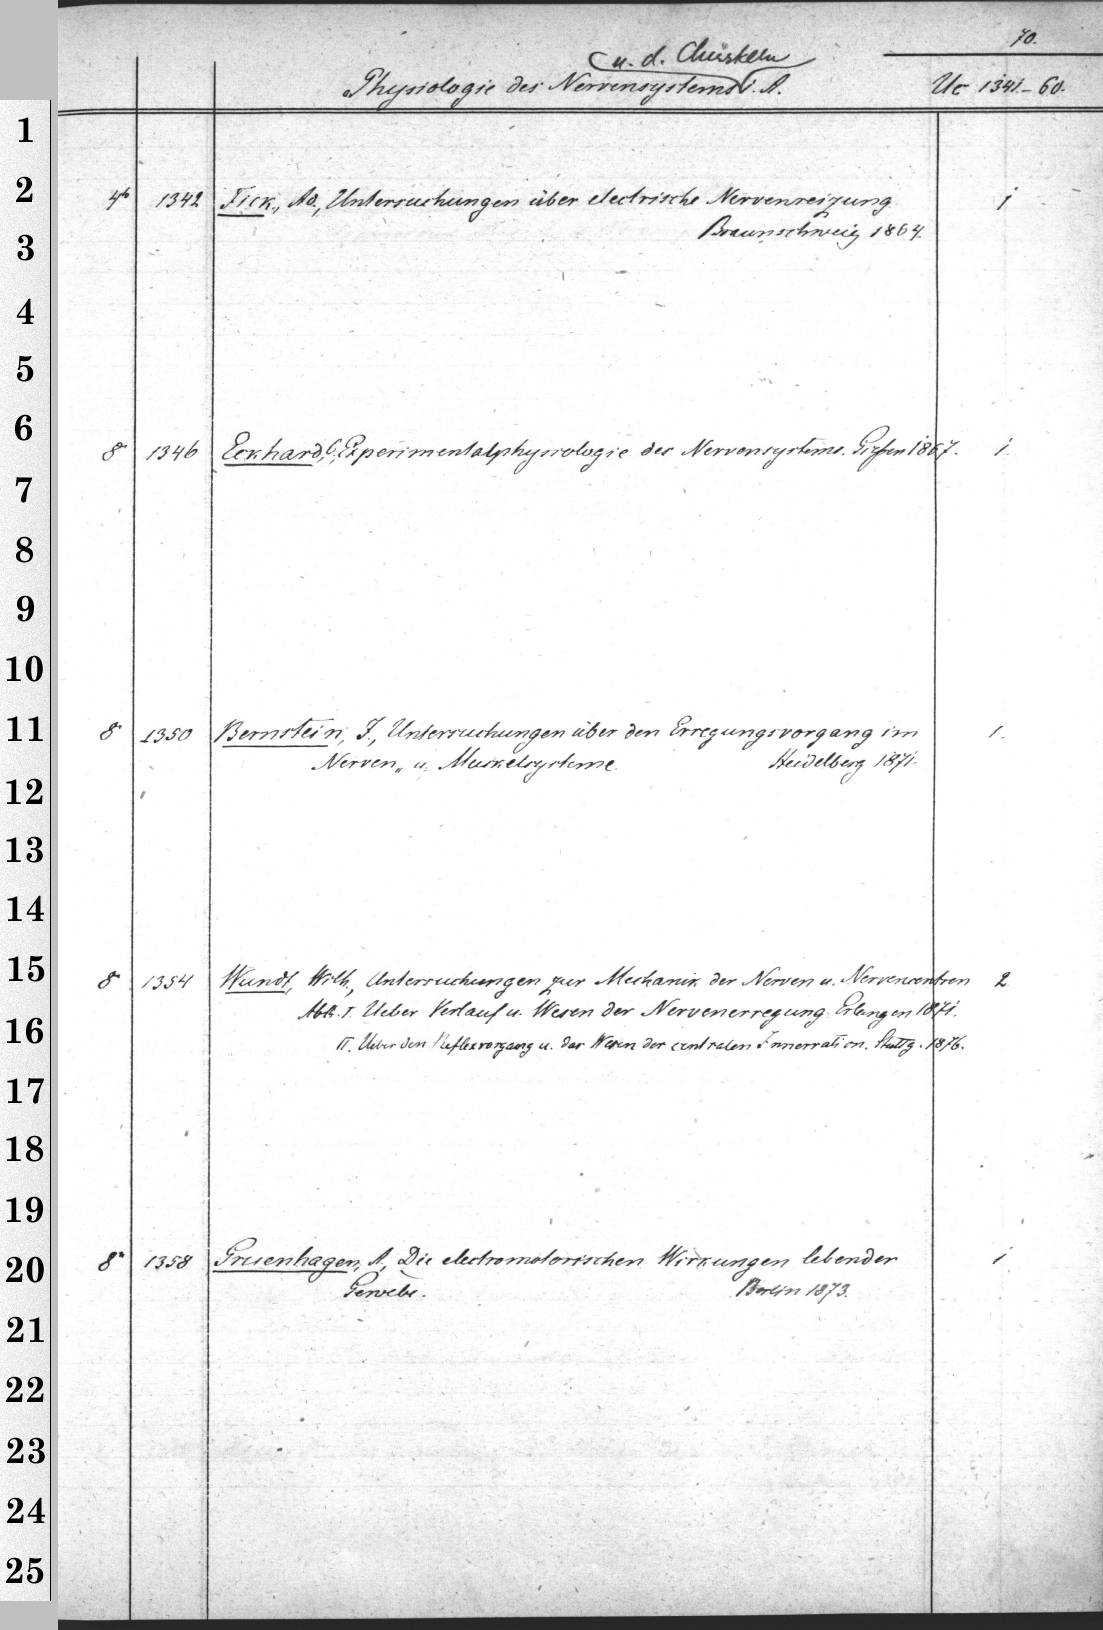 70.
u. d. Muskeln
Physiologie des Nervensystems i. A. Uc 1341–60.
1
2 4° 1342 Fick, Ad., Untersuchungen über electrische Nervenreizung 1
3 Braunschweig 1864.
4
5
6 8° 1346 Eckhard, C., Experimentalphysiologie des Nervensystems. Gießen 1867. 1.
7
8
9
10
11 8° 1350 Bernstein, J., Untersuchungen über den Erregungsvorgang im 1.
Nerven- u. Muskelsysteme. Heidelberg 1871.
12
13
14
15 8° 1354 Wundt, Wilh., Untersuchungen zur Mechanik der Nerven u. Nervencentren 2
Abth. I. Ueber Verlauf u. Wesen der Nervenerregung. Erlangen 1871.
16 II. Ueber den Reflexvorgang u. das Wesen der centralen Innervation. Stuttg. 1876.
17
18
19
20 8° 1358 Gruenhagen, A., Die electromotorischen Wirkungen lebender 1
Gewebe. Berlin 1873.
21
22
23
24
25